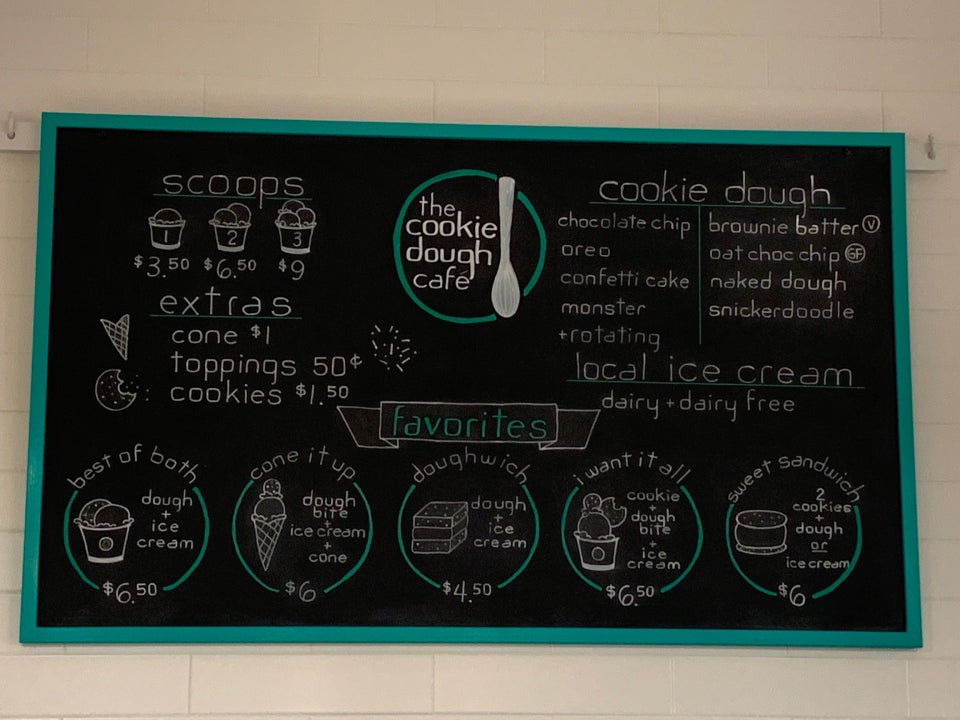 scoops
1 2 3
$3.50 $6.50 $9
extras
cone $1
toppings 50¢
cookies $1.50
the
cookie
dough
café
cookie dough
chocolate chip
oreo
confetti cake
monster
+rotating
brownie batter V
oat choc chip GF
naked dough
snickerdoodle
local ice cream
dairy + dairy free
favorites
best of both
dough
+
ice
cream
$6.50
cone it up
dough
bite
+
ice cream
+
cone
$6
doughwich
dough
+
ice
cream
$4.50
i want it all
cookie
+
dough
bite
+
ice
cream
$6.50
sweet sandwich
2
cookies
+
dough
or
ice cream
$6